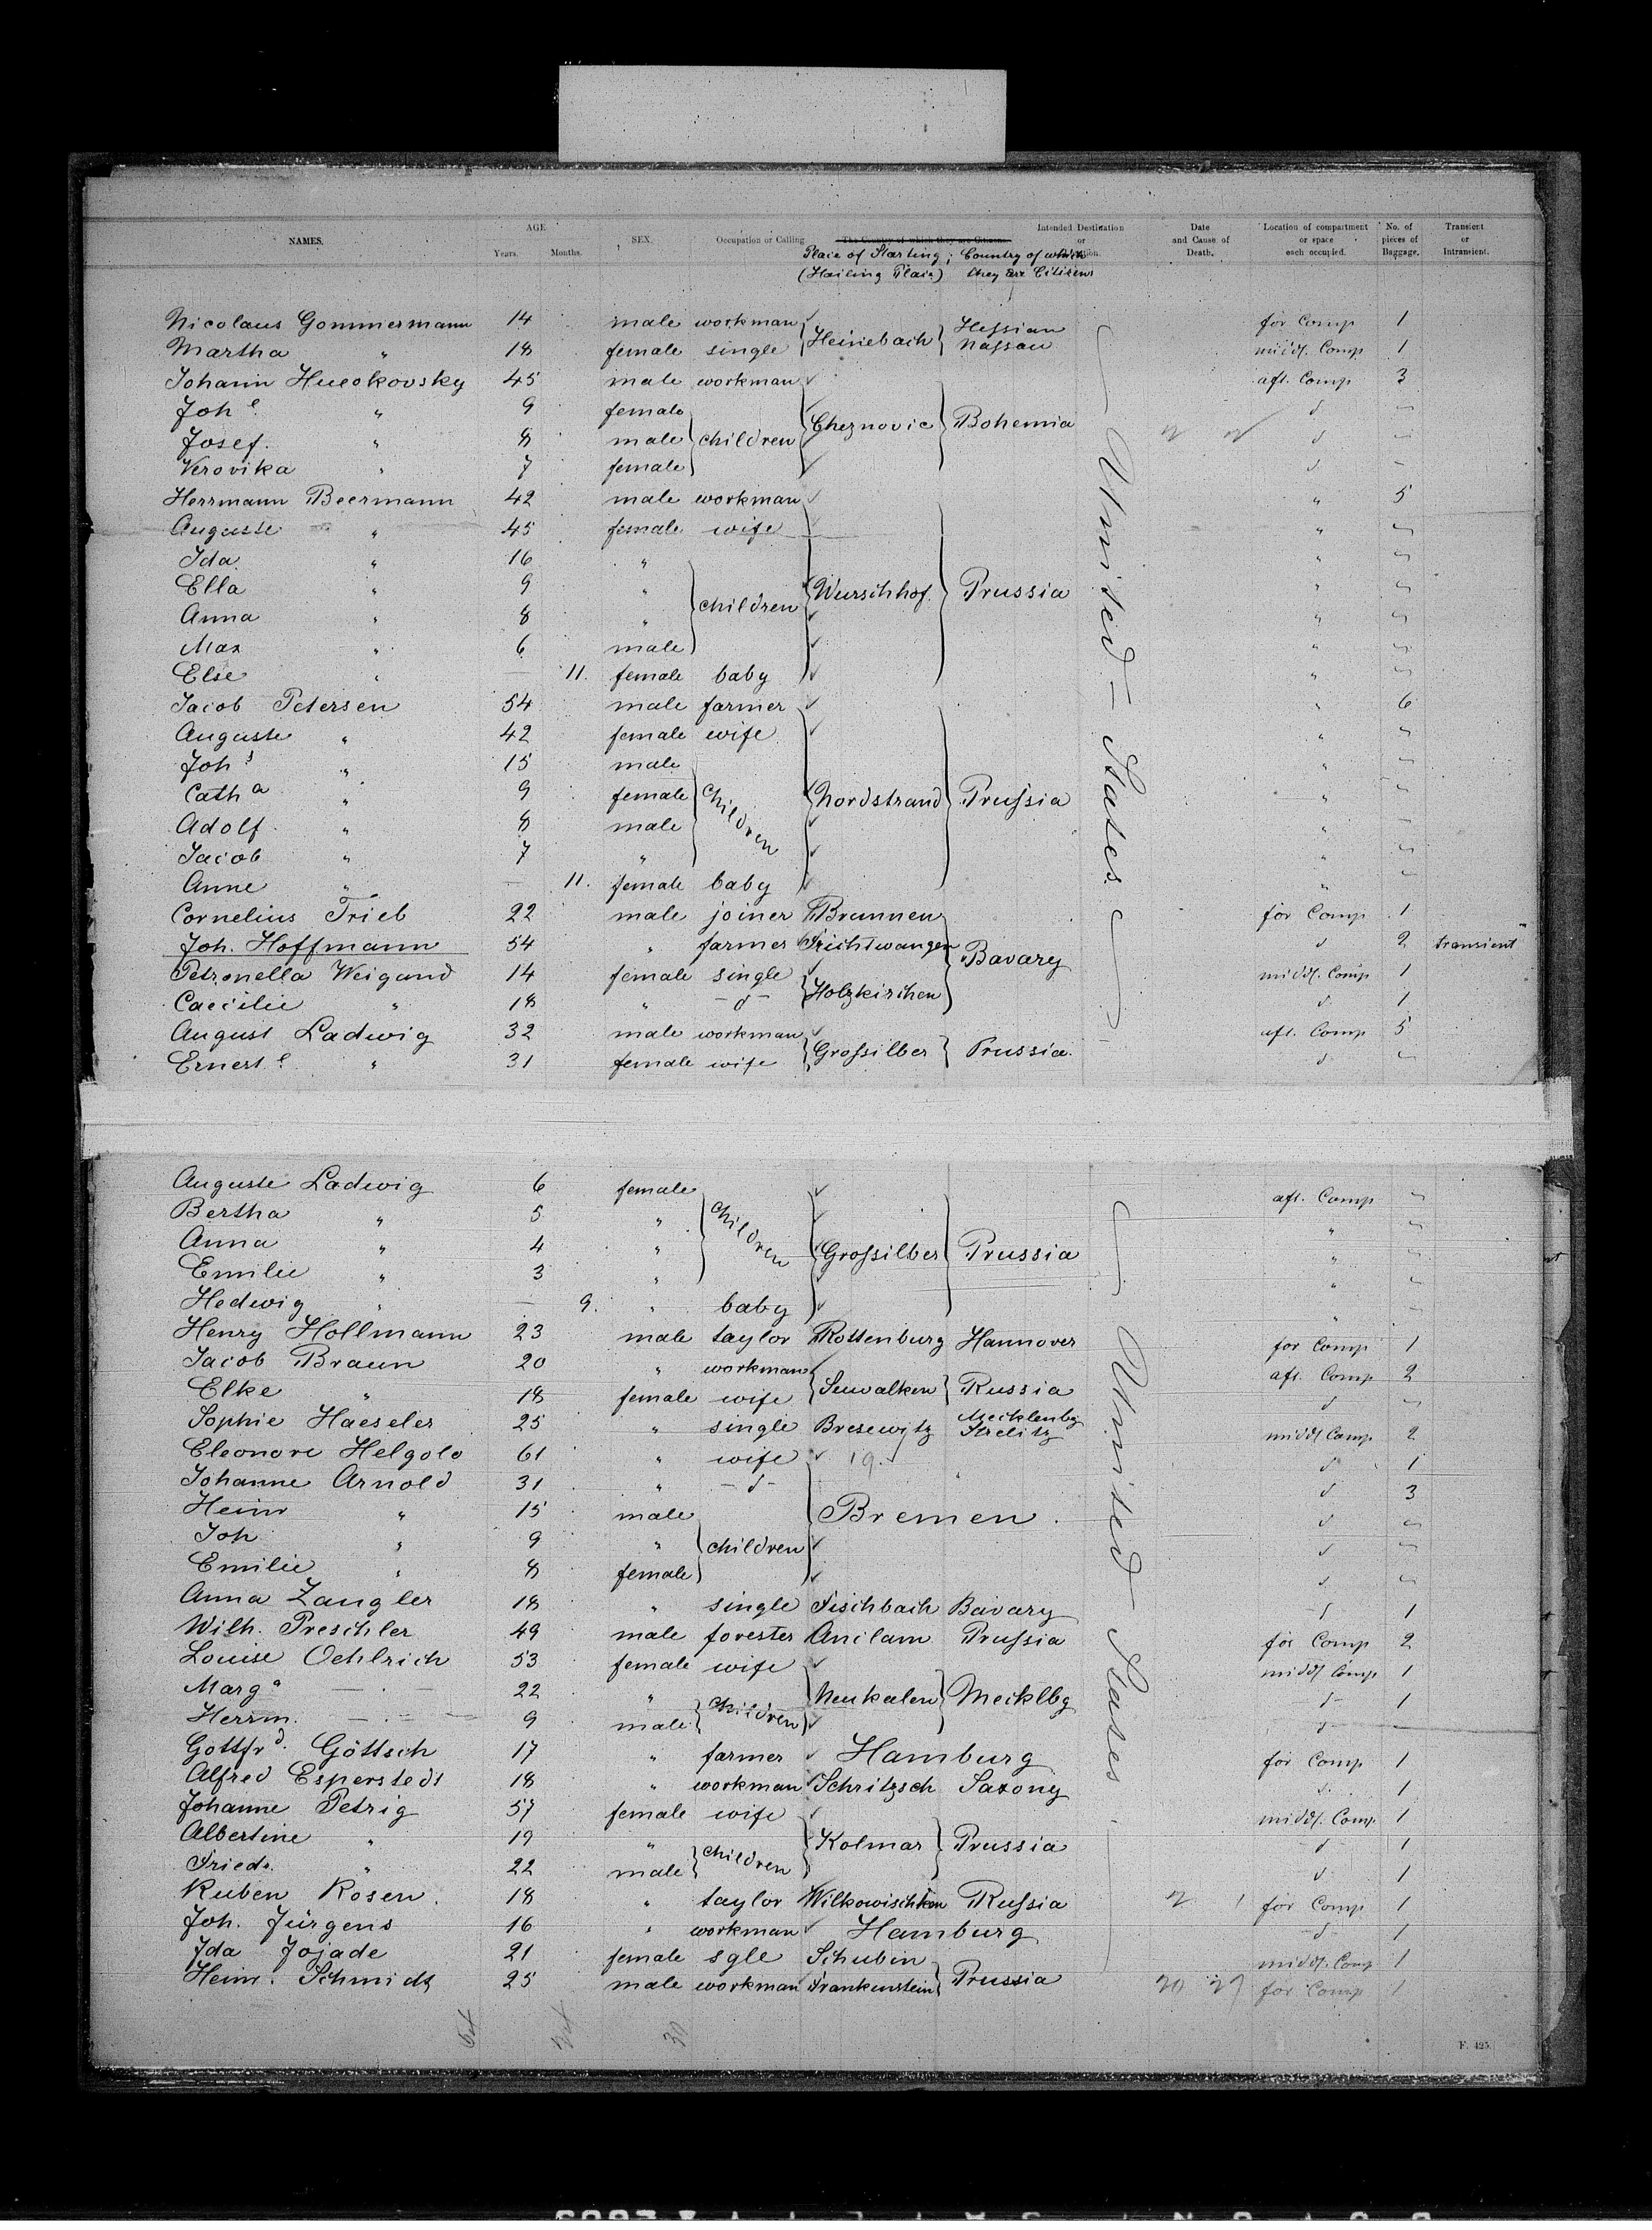 NAMES. AGE Years. Months. SEX. Occupation or Calling The Country of which they are Citizens. Place of Starting; (Hailing Place) Country of which they are Citizens Intended Destination or Date and Cause of Death. Location of compartment or space each occupied. No. of pieces of Baggage. Transient or Intransient.
Nicolaus Gommermann 14 male workman for Comp 1
Heinebach Hessian Nassau
Martha " 18 female single midd. Comp 1
Johann 45 male workman aft. Comp 3
Joh e. " 9 female d "
Josef. " 8 male children Cheznovic Bohemia d "
Verovika " 7 female d "
Herrmann Beermann 42 male workman " 5
Auguste " 45 female wife " "
Ida " 16 " " "
Ella " 9 " children Wurschhof. Prussia " "
Anna " 8 " " "
Max " 6 male " "
Else " — 11. female baby " "
Jacob Petersen 54 male farmer " 6
Auguste " 42 female wife " "
Joh s " 15 male " "
Cath a " 9 female children Nordstrand Prussia " "
Adolf " 8 male " "
Jacob " 7 " " "
Anne " — 11. female baby " "
United-States
Cornelius Trieb 22 male joiner Brunnen for Comp 1
Joh. Hoffmann 54 " farmer Bavary d 2 transient
Petronella Weigand 14 female single Holzkirchen midd. Comp 1
Caecilie " 18 " -d- d. 1
August Ladwig 32 male workman Grossilber Prussia. aft. Comp 5
Ernest e " 31 female wife d "
Auguste Ladwig 6 female aft. Comp "
Bertha " 5 " children " "
Anna " 4 " Grossilber Prussia " "
Emilie " 3 " " "
Hedwig " — 9. " baby " "
Henry Hollmann 23 male taylor Rottenburg Hannover for Comp 1
Jacob Braun 20 " workman Suwalken Russia aft. Comp 2
Elke " 18 female wife d "
Sophie Haeseler 25 " single Bresewitz Mecklenbg Strelitz midd. Comp 2
Eleonore Helgolo 61 " wife 19. d 1
Johanne Arnold 31 " -d- d 3
Heinr " 15 male Bremen. d "
Joh " 9 " children d "
Emilie " 8 female d "
Anna Zangler 18 " single Fischbach Bavary d 1
Wilh. Preschler 49 male forester Anclam Prussia for Comp 2
Louise Oehlrich 53 female wife midd. Comp 1
Marg a — " — 22 " children Neukalen Mecklbg d 1
Herrm. — " — 9 male d —
Gottfr d. Göttsch 17 " farmer Hamburg for Comp 1
Alfred Esperstedt 18 " workman Schritzsch Saxony d. 1
Johanne Petrig 57 female wife midd. Comp 1
Albertine " 19 " children Kolmar Prussia d 1
Friedr. " 22 male d 1
Ruben Rosen. 18 " taylor Wilkowischken Russia for Comp 1
Joh. Jürgens 16 " workman Hamburg d 1
Ida Jojade 21 female sgle Schubin Prussia midd. Comp 1
Heinr. Schmidt 25 male workman Frankenstein for Comp 1
United-States
F. 425.